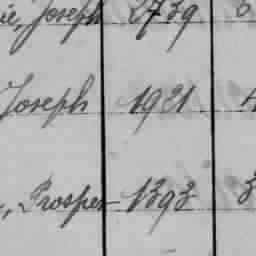 Joseph 2739
Joseph 1921
Prosper 1393 3